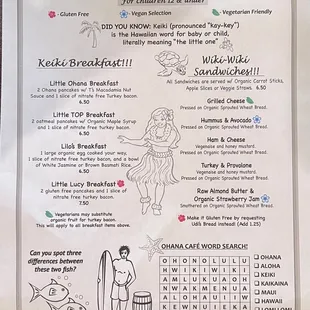 For children 12 & under
- Gluten Free
- Vegan Selection
Vegetarian Friendly
DID YOU KNOW: Keiki (pronounced "kay-key")
is the Hawaiian word for baby or child,
literally meaning "the little one"
Keiki Breakfast!!!
Little Ohana Breakfast
2 Ohana pancakes w/ T's Macadamia Nut
Sauce and 1 slice of nitrate free Turkey bacon.
6.50
Little TOP Breakfast
2 oatmeal pancakes w/ Organic Maple Syrup
and 1 slice of nitrate free Turkey bacon.
6.50
Lilo's Breakfast
1 large organic egg cooked your way,
1 slice of nitrate free turkey bacon, and a bowl
of White Jasmine or Brown Basmati Rice
6.50
Little Lucy Breakfast
2 gluten free pancakes and 1 slice of
nitrate free Turkey bacon.
7.50
Vegetarians may substitute
organic fruit for turkey bacon.
This will apply to all breakfast items above.
Wiki-Wiki
Sandwiches!!!
All Sandwiches are served w/ Organic Carrot Sticks,
Apple Slices or Veggie Straws. 6.50
Grilled Cheese
Pressed on Organic Sprouted Wheat Bread.
Hummus & Avocado
Pressed on Organic Sprouted Wheat Bread.
Ham & Cheese
Vegetable and honey mustard.
Pressed on Organic Sprouted Wheat Bread.
Turkey & Provolone
Vegetable and honey mustard.
Pressed on Organic Sprouted Wheat Bread.
Raw Almond Butter &
Organic Strawberry Jam
Smothered on Organic Sprouted Wheat Bread.
Make it Gluten Free by requesting
Udi's Bread instead! (Add 1.25)
Can you spot three
differences between
these two fish?
OHANA CAFÉ WORD SEARCH!
O H O N O L U L U
H W I K I W I K I
A M L U K U A O H
N W A K M E N U A
A L O H A U I I W
OHANA
ALOHA
KEIKI
KAIKAINA
MAUI
HAWAII